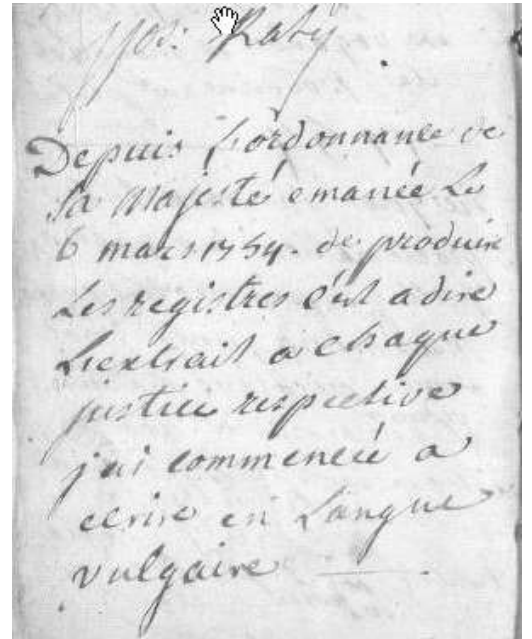 jjos: Raby
Depuis l'ordonnance de
sa majesté emanée le
6 mars 1754. de produire
Les registres c'est a dire
L'extrait a chaque
justice respective
j'ai commencé a
ecrire en Langue
vulgaire